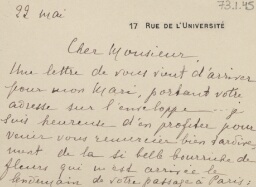 73.1.45
22 mai
17 RUE DE L'UNIVERSITÉ
Cher Monsieur
Une lettre de vous vient d'arriver
pour mon Mari, portant votre
adresse sur l'enveloppe... je
suis heureuse d'en profiter pour
venir vous remercier bien tardive-
ment de la si belle bourriche de
fleurs qui m'est arrivée le
lendemain de votre passage à Paris;